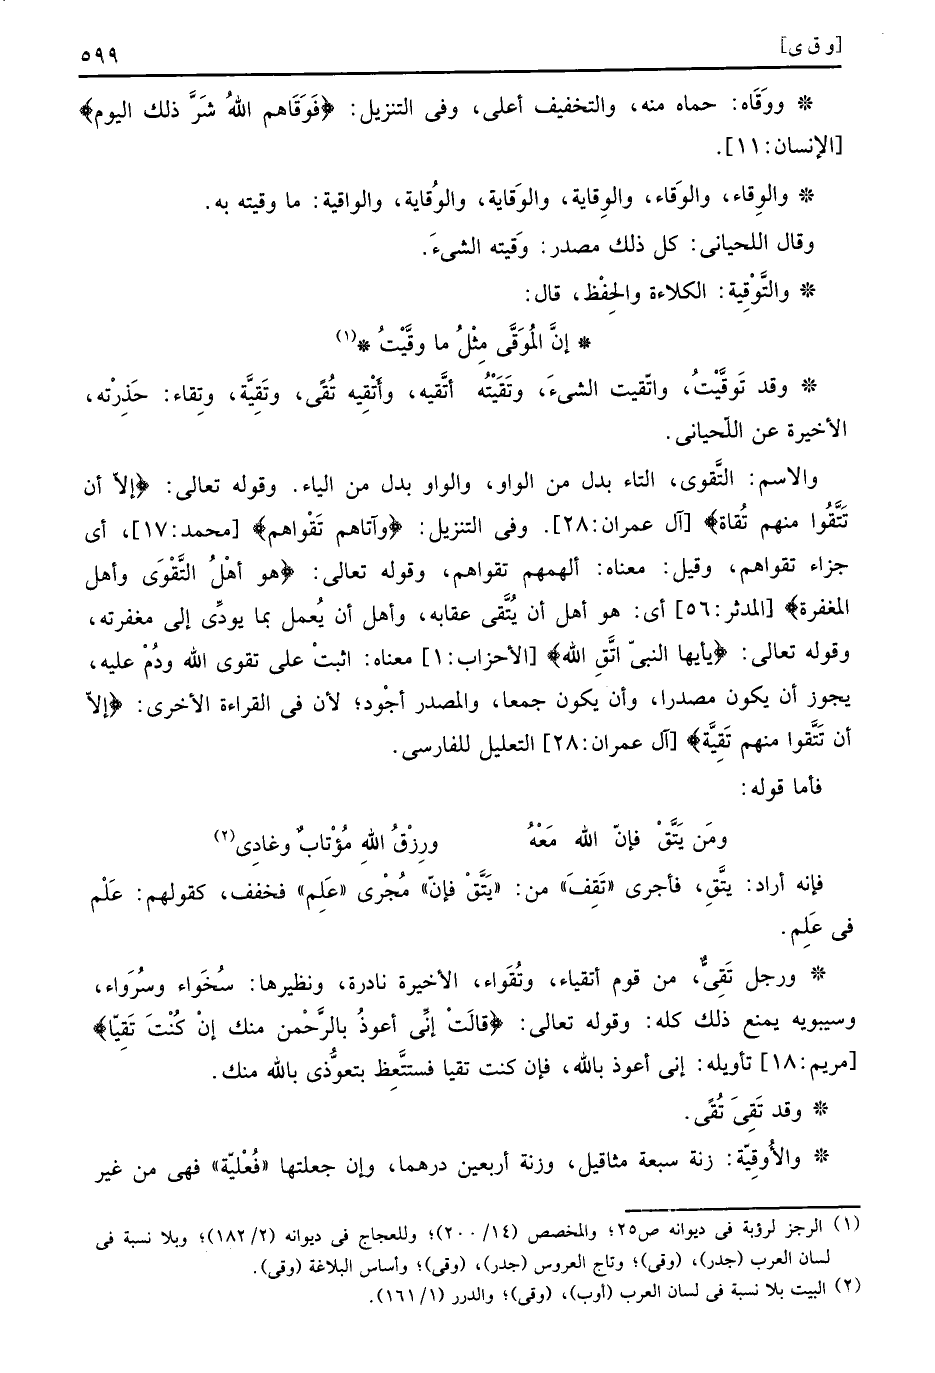 [و ق ى] ٥٩٩
❊ ووَقَاه: حماه منه، والتخفيف أعلى، وفى التنزيل: ﴿فَوَقَاهم اللهُ شَرَّ ذلك اليوم﴾
[الإنسان:١١].
❊ والوِقاء، والوَقاء، والوِقاية، والوَقاية، والوُقاية، والواقية: ما وقيته به.
وقال اللحيانى: كل ذلك مصدر: وَقيته الشىءَ.
❊ والتَّوْقِية: الكلاءة والحِفْظ، قال:
❊ إنَّ المُوَقَّى مِثْلُ ما وقَّيْتُ ❊(١)
❊ وقد تَوقَّيْتُ، واتّقيت الشىءَ، وتَقَيْتُه أتَّقيه، وأَتْقِيه تُقًى، وتَقِيَّة، وتِقاء: حَذِرْته،
الأخيرة عن اللّحيانى.
والاسم: التَّقوى، التاء بدل من الواو، والواو بدل من الياء. وقوله تعالى: ﴿إلاّ أن
تَتَّقُوا منهم تُقاة﴾ [آل عمران:٢٨]. وفى التنزيل: ﴿وآتاهم تَقْواهم﴾ [محمد:١٧]، أى
جزاء تقواهم، وقيل: معناه: ألهمهم تقواهم، وقوله تعالى: ﴿هو أهْلُ التَّقْوَى وأهل
المغفرة﴾ [المدثر:٥٦] أى: هو أهل أن يُتَّقى عقابه، وأهل أن يُعمل بما يودِّى إلى مغفرته،
وقوله تعالى: ﴿يأيها النبىّ اتَّقِ الله﴾ [الأحزاب:١] معناه: اثبتْ على تقوى الله ودُمْ عليه،
يجوز أن يكون مصدرا، وأن يكون جمعا، والمصدر أجْود؛ لأن فى القراءة الأخرى: ﴿إلاّ
أن تَتَّقوا منهم تَقِيَّة﴾ [آل عمران:٢٨] التعليل للفارسى.
فأما قوله:
ومَن يَتَّقْ فإنّ الله مَعْهُ ورِزْقُ اللهِ مُؤْتابٌ وغادِى(٢)
فإنه أراد: يتَّقِ، فأجرى «تَقِفَ» من: «يَتَّقْ فإنّ» مُجْرى «عَلِم» فخفف، كقولهم: عَلْم
فى عَلِم.
❊ ورجل تَقِىٌّ، من قوم أتقياء، وتُقَواء، الأخيرة نادرة، ونظيرها: سُخَواء وسُرَواء،
وسيبويه يمنع ذلك كله: وقوله تعالى: ﴿قالَتْ إنِّى أعوذُ بالرَّحْمن منك إنْ كُنْتَ تَقِيّا﴾
[مريم:١٨] تأويله: إنى أعوذ بالله، فإن كنت تقيا فستتَّعِظ بتعوُّذى بالله منك.
❊ وقد تَقِىَ تُقًى.
❊ والأُوقِيّة: زنة سبعة مثاقيل، وزنة أربعين درهما، وإن جعلتها «فُعْليّة» فهى من غير
(١) الرجز لرؤبة فى ديوانه ص٢٥؛ والمخصص (١٤/ ٢٠٠)؛ وللعجاج فى ديوانه (٢/ ١٨٢)؛ وبلا نسبة فى
لسان العرب (جدر)، (وقى)؛ وتاج العروس (جدر)، (وقى)؛ وأساس البلاغة (وقى).
(٢) البيت بلا نسبة فى لسان العرب (أوب)، (وقى)؛ والدرر (١/ ١٦١).